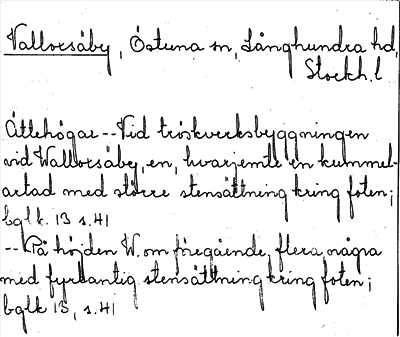 Vallorsåby, Östuna sn, Långhundra hd,
Stockh. l
Ättehögar -- Vid tröskverksbyggningen
vid Wallorsåby, en, hvarjemte en kummel-
artad med större stensättning kring foten;
bglk. 13 s. 41
-- På höjden W. om föregående, flera, några
med fyrkantig stensättning kring foten;
bglk 13, s. 41